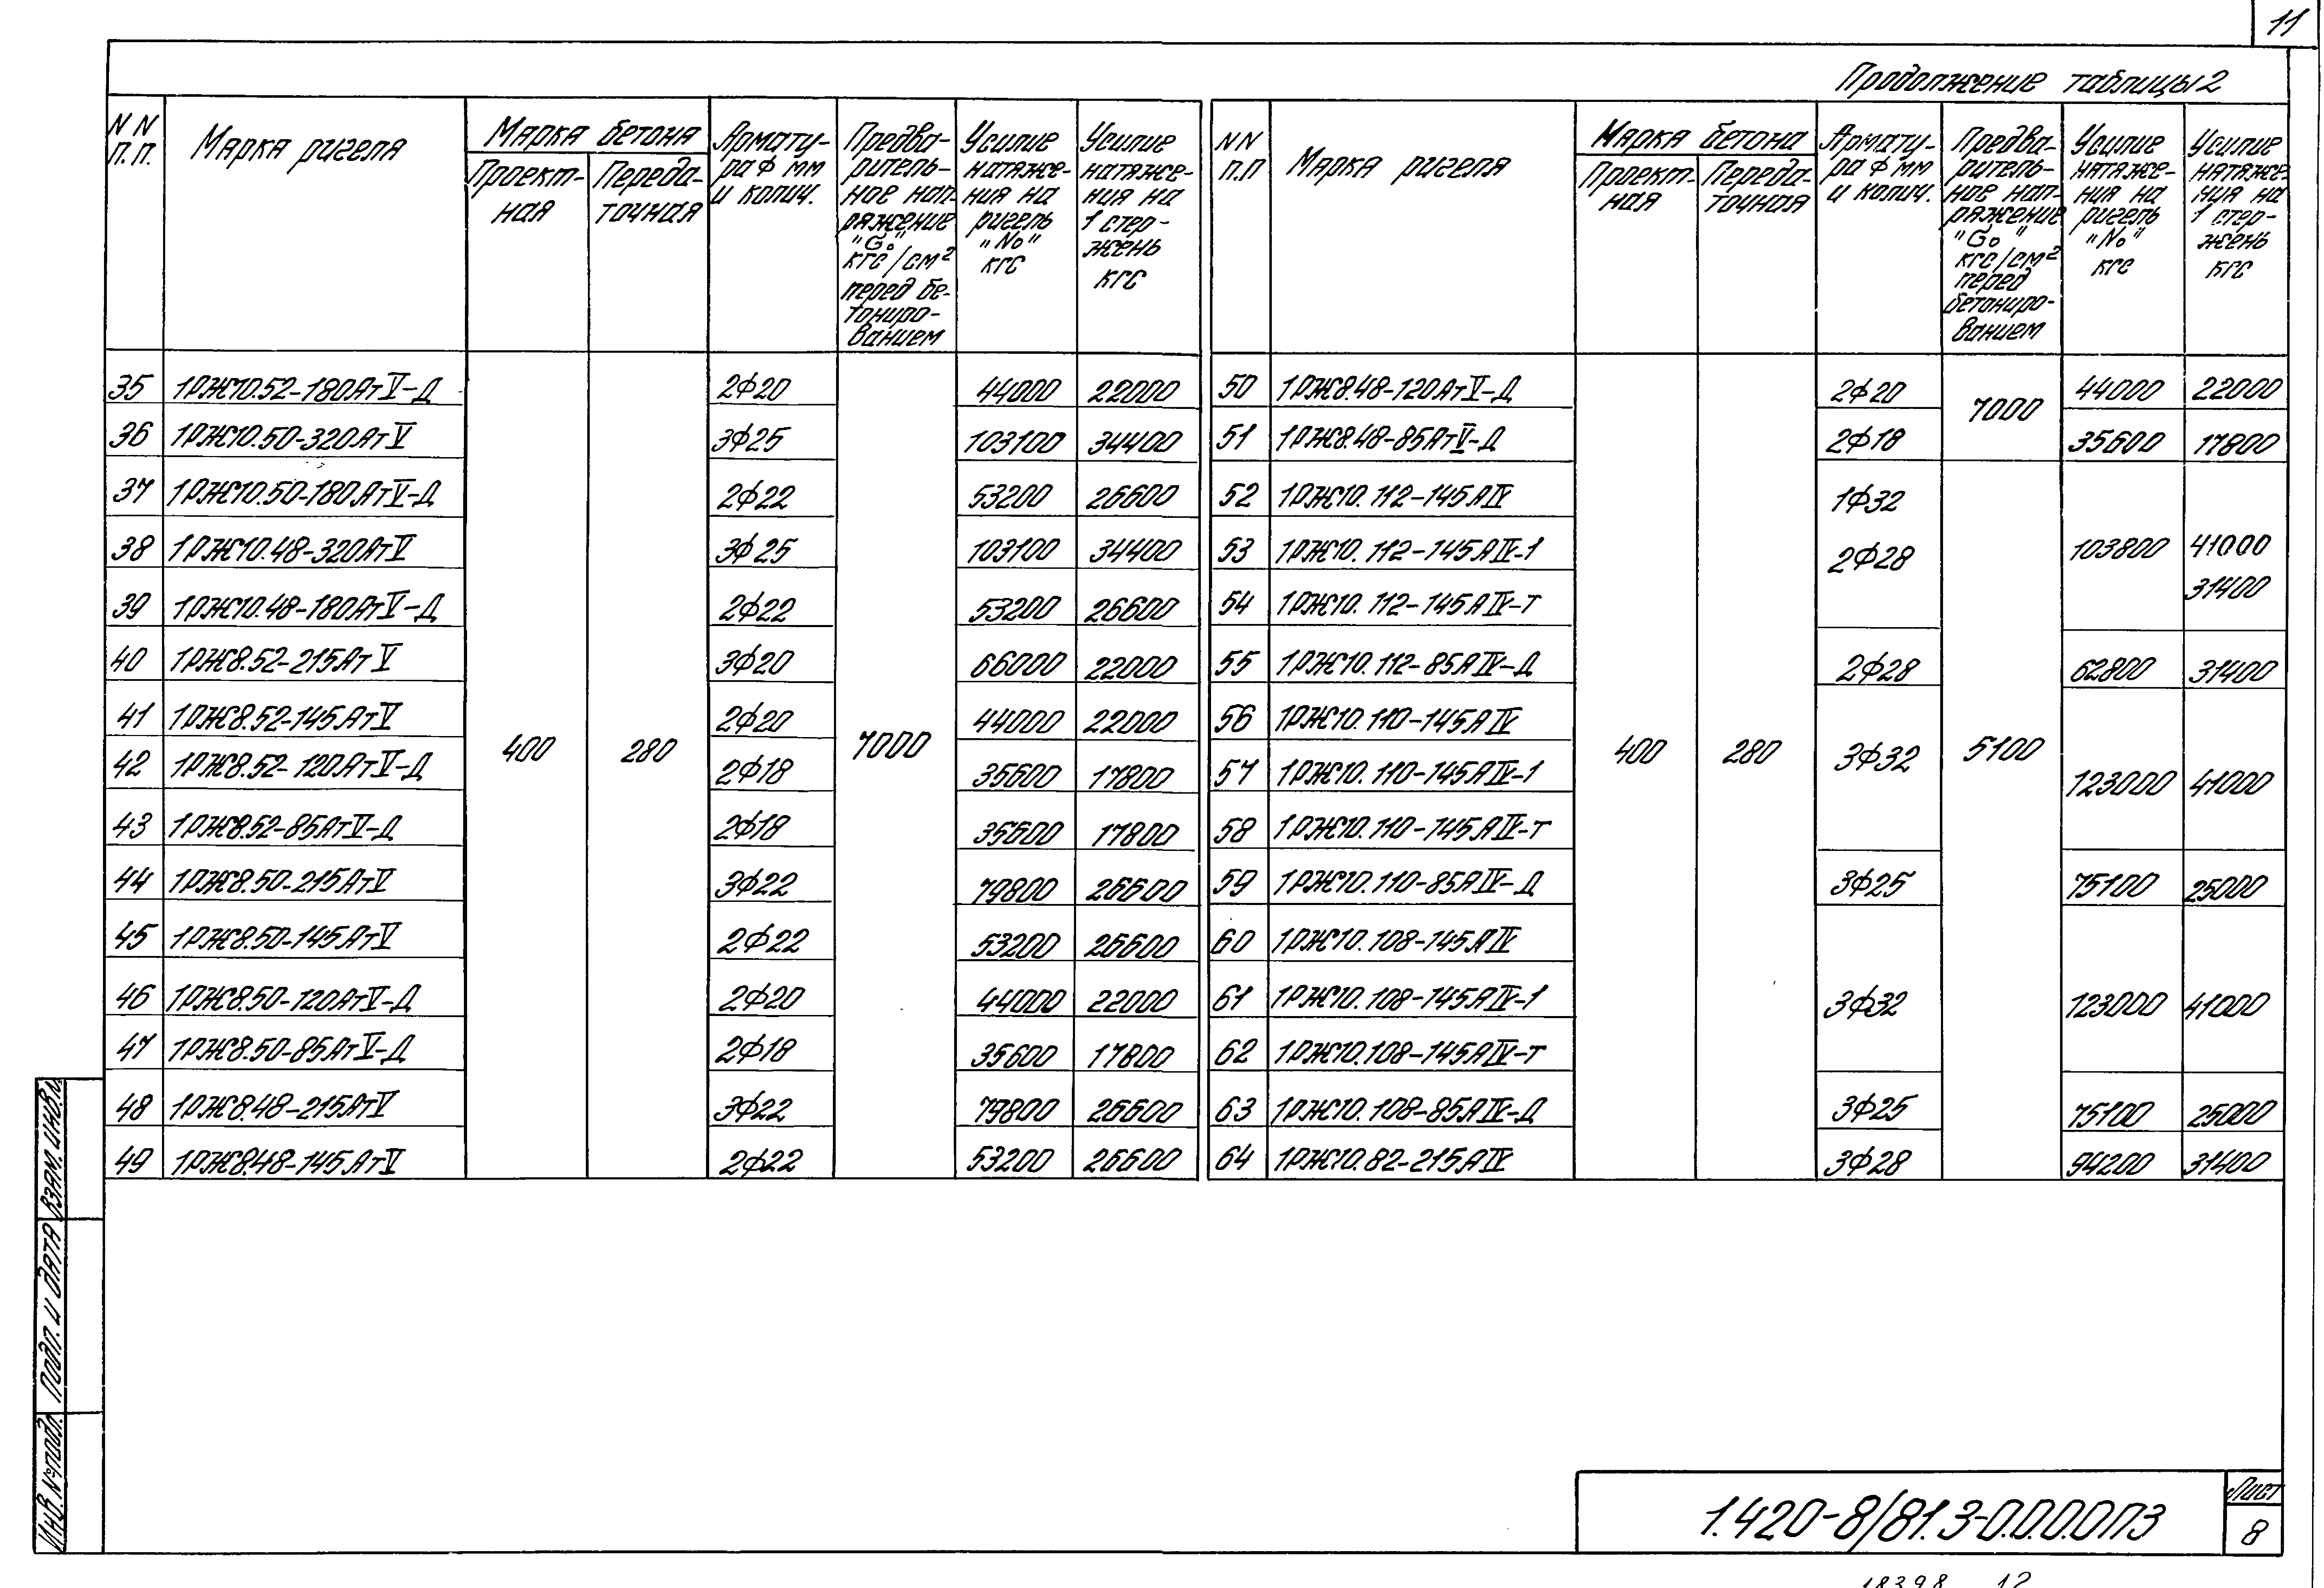 11
Продолжение таблицы 2
NN п.п. Марка ригеля Марка бетона Проект-ная Переда-точная Армату-ра Ф мм и колич. Предва-ритель-ное нап-ряжение "G₀" кгс/см² перед бе-тониро-ванием Усилие натяже-ния на ригель "N₀" кгс Усилие натяже-ния на 1 стер-жень кгс
35 1РЖ10.52-180АтV-Д 2Ф20 44000 22000
36 1РЖ10.50-320АтV 3Ф25 103100 34400
37 1РЖ10.50-180АтV-Д 2Ф22 53200 26600
38 1РЖ10.48-320АтV 3Ф25 103100 34400
39 1РЖ10.48-180АтV-Д 2Ф22 53200 26600
40 1РЖ8.52-215АтV 3Ф20 66000 22000
41 1РЖ8.52-145АтV 2Ф20 44000 22000
42 1РЖ8.52-120АтV-Д 400 280 2Ф18 7000 35600 17800
43 1РЖ8.52-85АтV-Д 2Ф18 35600 17800
44 1РЖ8.50-215АтV 3Ф22 79800 26600
45 1РЖ8.50-145АтV 2Ф22 53200 26600
46 1РЖ8.50-120АтV-Д 2Ф20 44000 22000
47 1РЖ8.50-85АтV-Д 2Ф18 35600 17800
48 1РЖ8.48-215АтV 3Ф22 79800 26600
49 1РЖ8.48-145АтV 2Ф22 53200 26600
NN п.п Марка ригеля Марка бетона Проект-ная Переда-точная Армату-ра Ф мм и колич. Предва-ритель-ное нап-ряжение "G₀" кгс/см² перед бетониро-ванием Усилие натяже-ния на ригель "N₀" кгс Усилие натяже-ния на 1 стер-жень кгс
50 1РЖ8.48-120АтV-Д 2Ф20 7000 44000 22000
51 1РЖ8.48-85АтV-Д 2Ф18 35600 17800
52 1РЖ10.112-145АIV 1Ф32
53 1РЖ10.112-145АIV-1 2Ф28 103800 41000
54 1РЖ10.112-145АIV-Т 31400
55 1РЖ10.112-85АIV-Д 2Ф28 62800 31400
56 1РЖ10.110-145АIV
57 1РЖ10.110-145АIV-1 400 280 3Ф32 5100 123000 41000
58 1РЖ10.110-145АIV-Т
59 1РЖ10.110-85АIV-Д 3Ф25 75100 25000
60 1РЖ10.108-145АIV
61 1РЖ10.108-145АIV-1 3Ф32 123000 41000
62 1РЖ10.108-145АIV-Т
63 1РЖ10.108-85АIV-Д 3Ф25 75100 25000
64 1РЖ10.82-215АIV 3Ф28 94200 31400
Взам. инв.№
Подп. и дата
Инв.№подл.
1.420-8/81.3-0.0.0.0ПЗ
Лист
8
18398 12